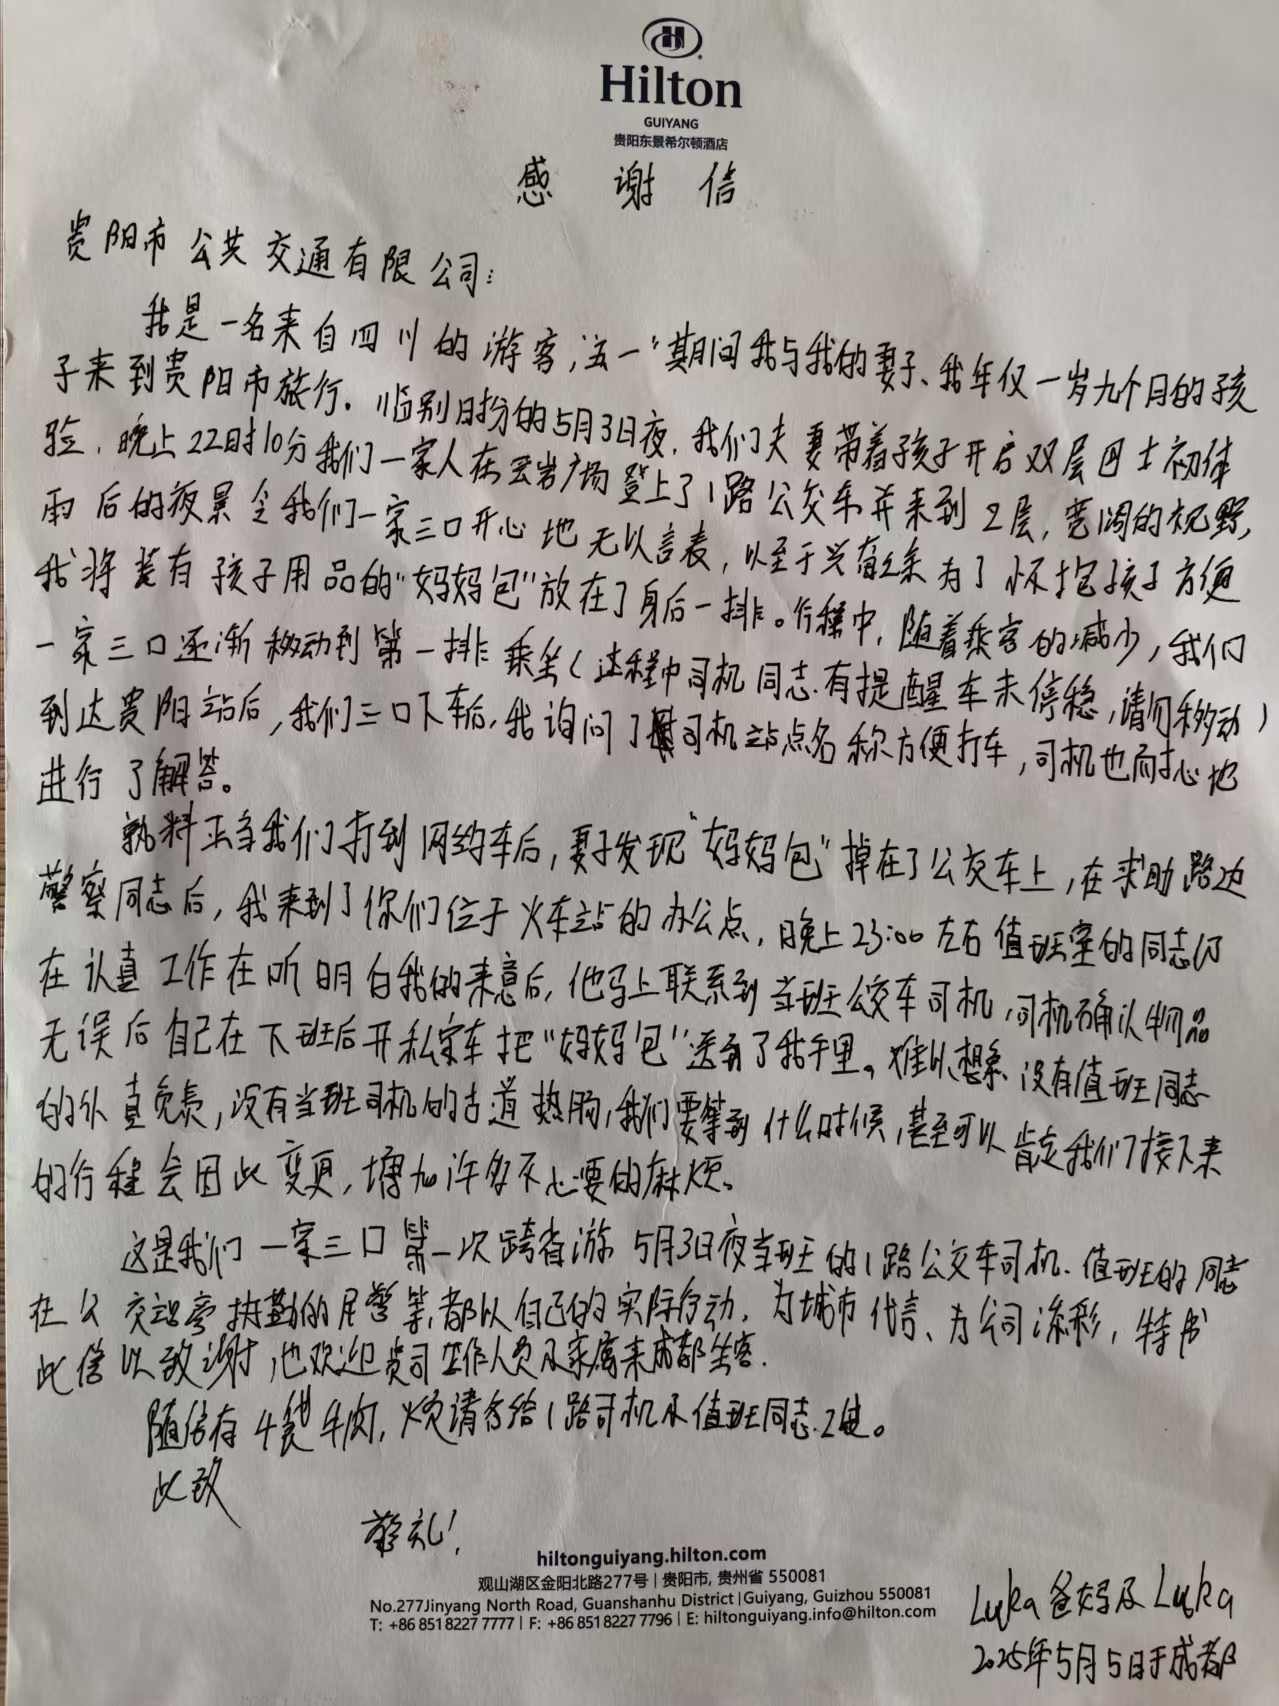 Hilton
GUIYANG
贵阳东景希尔顿酒店
感谢信
贵阳市公共交通有限公司：
我是一名来自四川的游客，"五一"期间我与我的妻子、我年仅一岁九个月的孩
子来到贵阳市旅行。临别日扮的5月3日夜，我们夫妻带着孩子开启双层巴士初体
验，晚上22时10分我们一家人在云岩广场登上了1路公交车并来到2层，宽阔的视野，
雨后的夜景令我们一家三口开心地无以言表，以至于兴奋之余为了怀抱孩子方便
我将装有孩子用品的"妈妈包"放在了身后一排。行程中，随着乘客的减少，我们
一家三口逐渐移动到第一排乘坐（过程中司机同志有提醒车未停稳，请勿移动）
到达贵阳站后，我们三口下车后，我询问了司机站点名称方便打车，司机也耐心地
进行了解答。
孰料正当我们打到网约车后，妻子发现"妈妈包"掉在了公交车上，在求助路边
警察同志后，我来到了你们位于火车站的办公点，晚上23:00左右值班室的同志仍
在认真工作在听明白我的来意后，他马上联系到当班公交车司机，司机确认物品
无误后自己在下班后开私家车把"妈妈包"送到了我手里。难以想象没有值班同志
的认真负责，没有当班司机的古道热肠，我们要等到什么时候，甚至可以肯定我们接下来
的行程会因此变更，增加许多不必要的麻烦。
这是我们一家三口第一次跨省游 5月3日夜当班的1路公交车司机、值班的同志
在公交站旁执勤的民警等，都以自己的实际行动，为城市代言、为公司添彩，特书
此信以致谢，也欢迎贵司工作人员及家属来成都坐客。
随信有4袋牛肉，烦请各给1路司机及值班同志2袋。
此致
敬礼！
hiltonguiyang.hilton.com
观山湖区金阳北路277号 | 贵阳市, 贵州省 550081
No.277Jinyang North Road, Guanshanhu District | Guiyang, Guizhou 550081
T: +86 851 8227 7777 | F: +86 851 8227 7796 | E: hiltonguiyang.info@hilton.com
Luka爸妈及Luka
2025年5月5日于成都